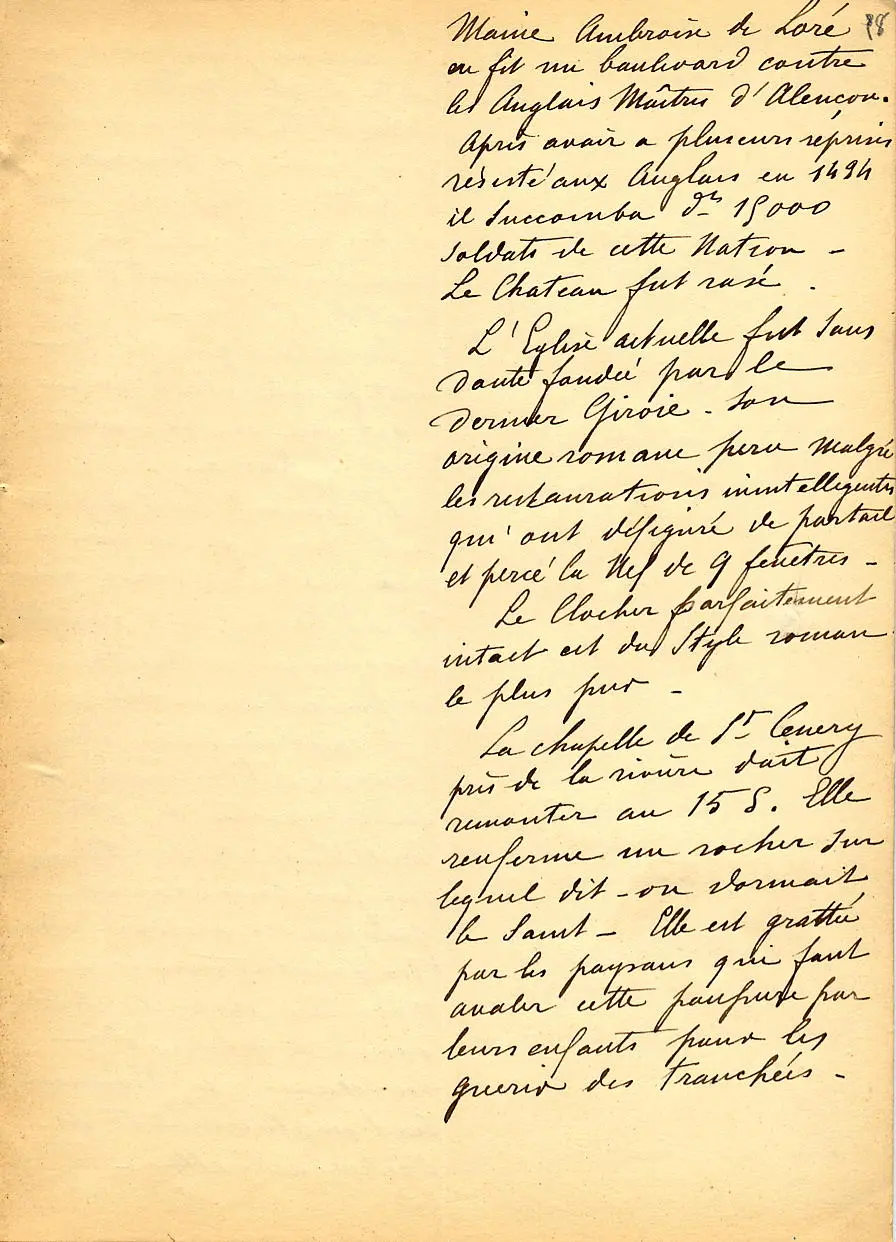 Maine Ambroise de Loré 78
en fit un boulevard contre
les Anglais Maîtres d'Alençon.
Après avoir a plusieurs reprises
résisté aux Anglais en 1434
il succomba dt 15000
soldats de cette Nation –
Le Chateau fut rasé.
L'Eglise actuelle fut sans
doute fondée par le
dernier Giroie. Son
origine romane perce Malgré
les restaurations inintelligentes
qui ont défiguré de portail
et percé la Nef de 9 fenêtres –
Le Clocher parfaitement
intact est du Style roman
le plus pur –
La chapelle de St Cenery
près de la rivière doit
remonter au 15 S. Elle
renferme un rocher sur
lequel dit-on dormait
le Saint – Elle est grattée
par les paysans qui font
avaler cette par
leurs enfants pour les
guerir des tranchées –